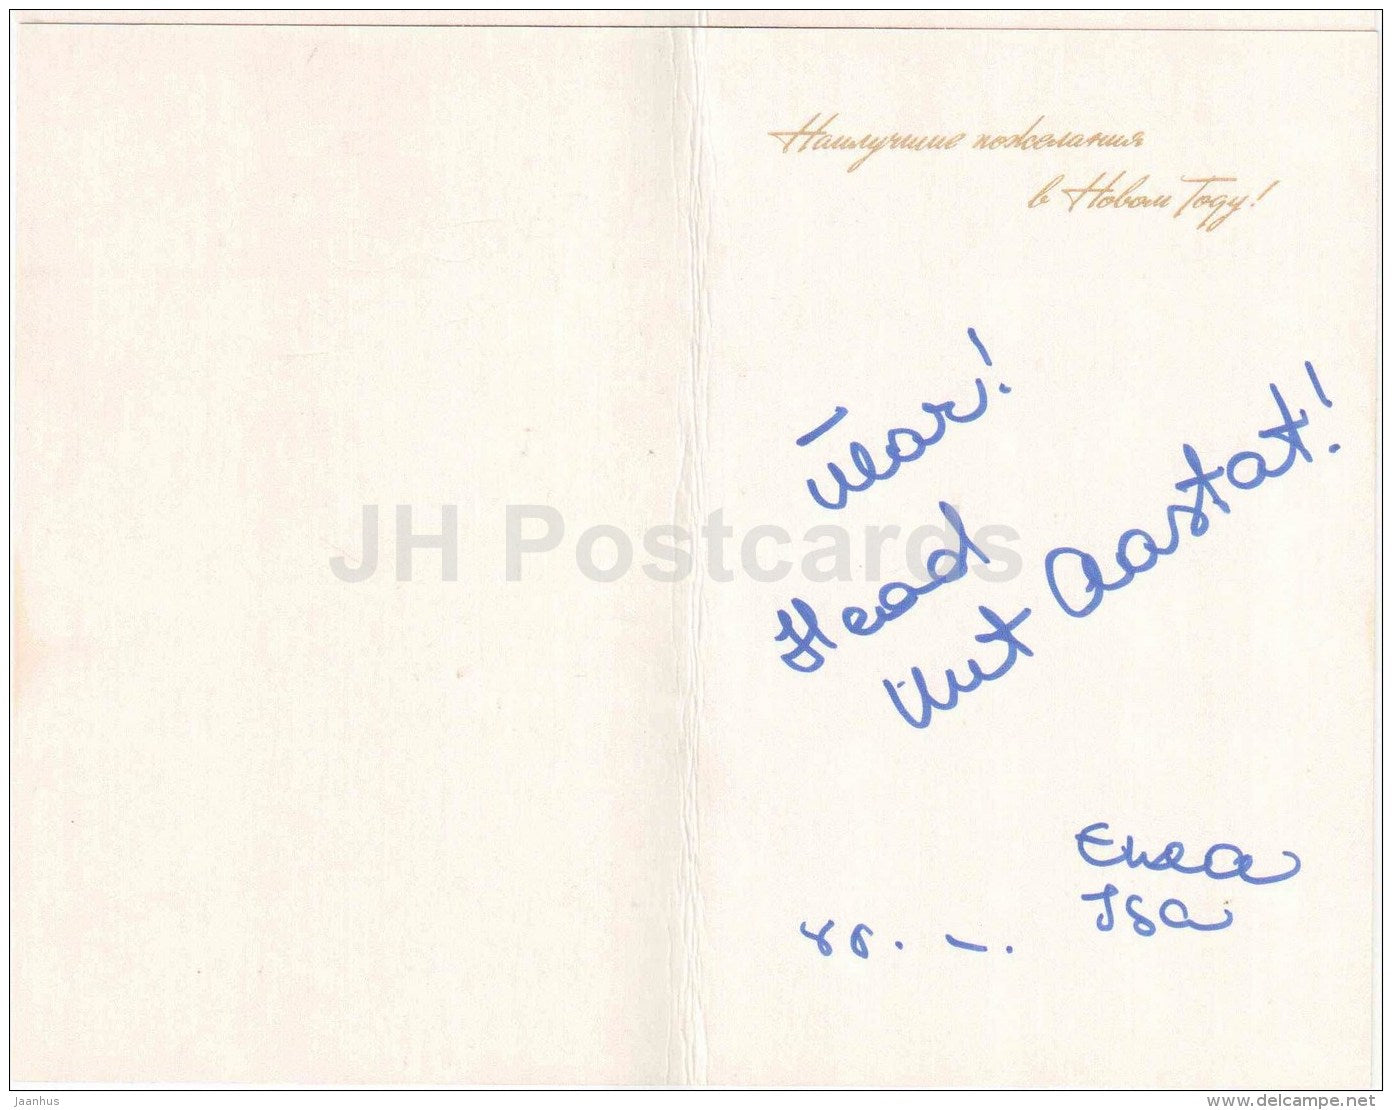 Наилучшие пожелания
в Новом Году!
Ülar!
Head
uut Aastat!
Ema
Isa
86.
JH Postcards
Jaanhus
www.delcampe.net